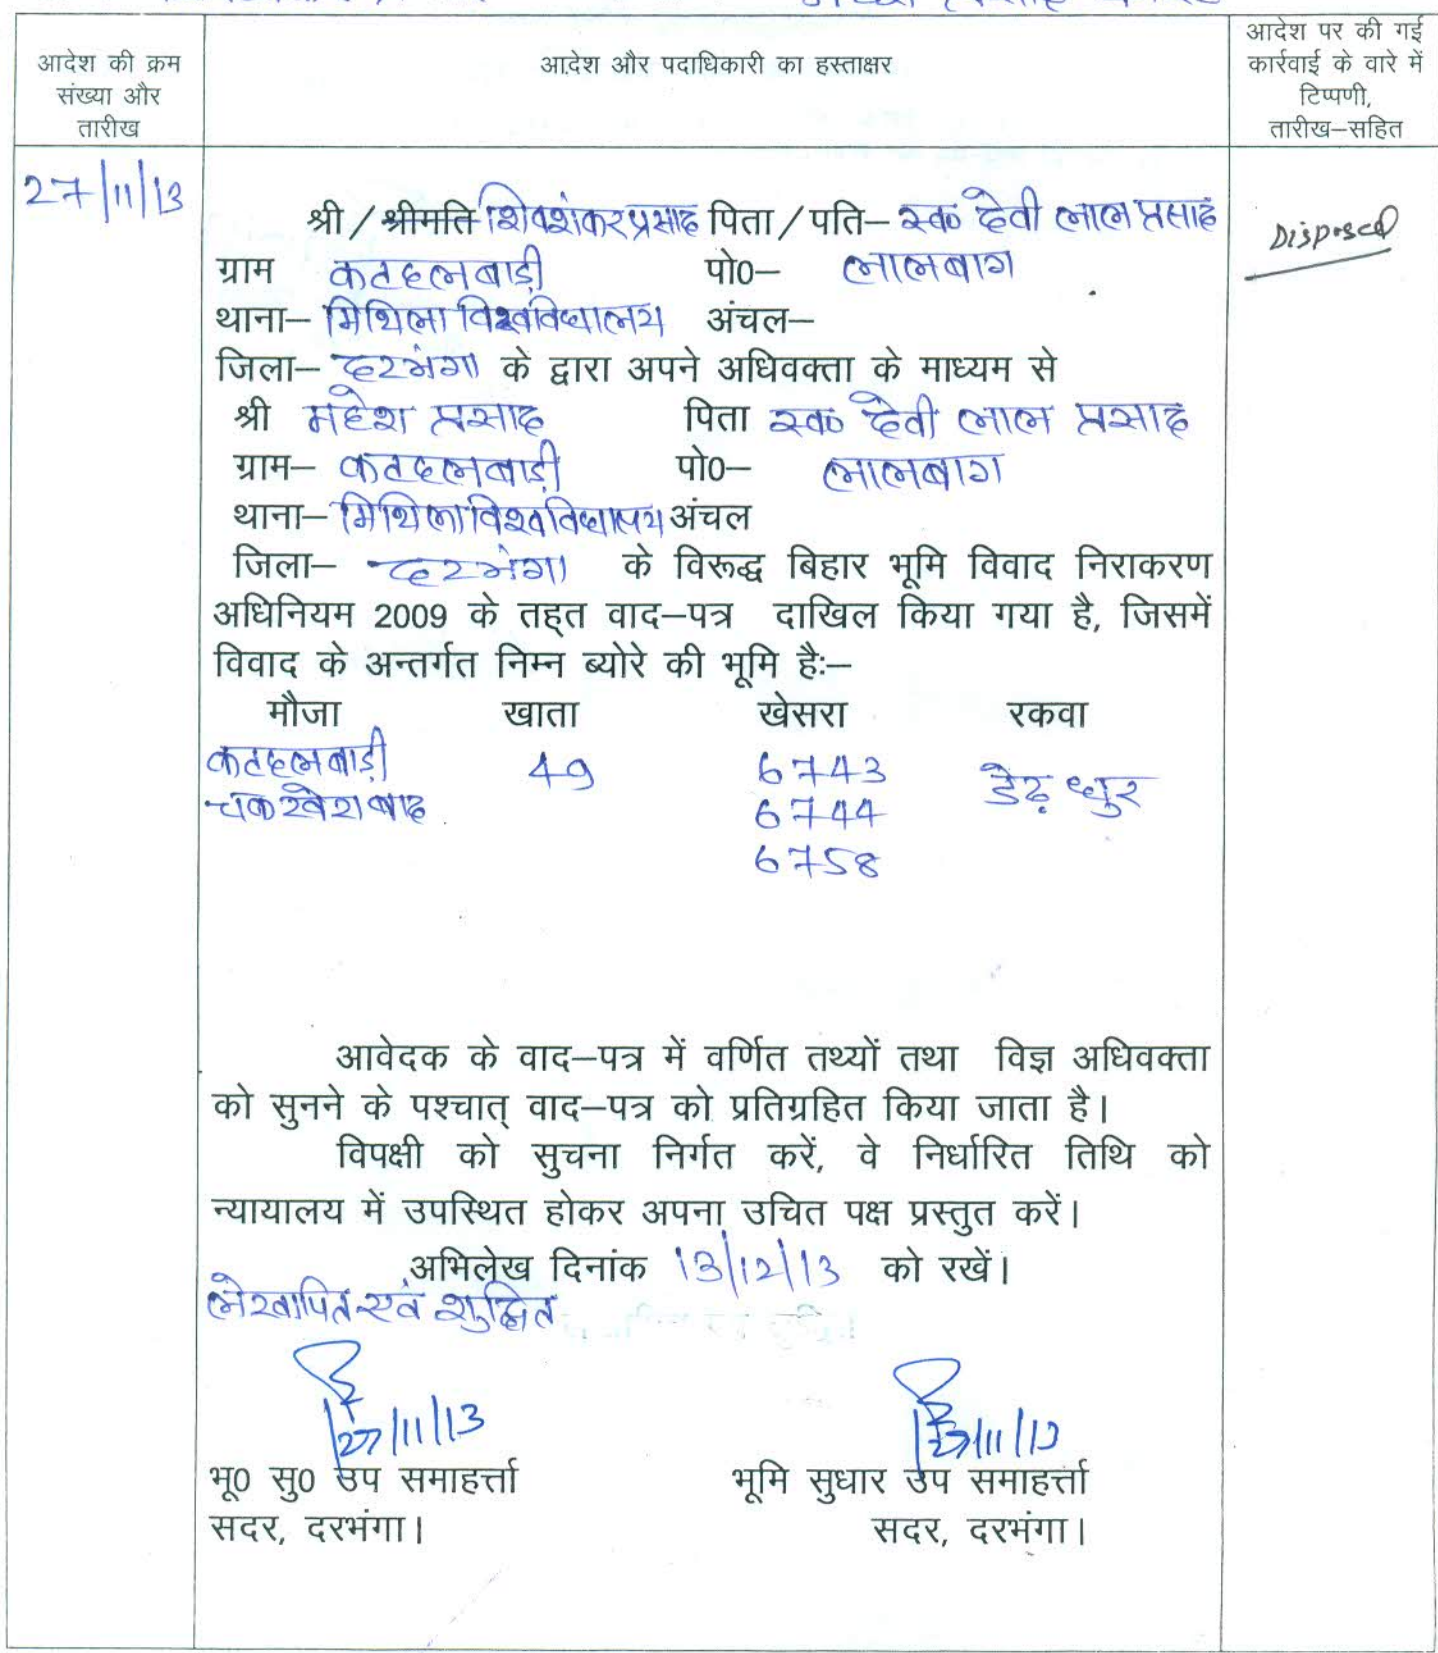 आदेश की क्रम
संख्या और
तारीख
आदेश और पदाधिकारी का हस्ताक्षर
आदेश पर की गई
कार्रवाई के वारे में
टिप्पणी,
तारीख–सहित
27/11/13
Disposed
श्री / श्रीमति शिवशंकर प्रसाद पिता / पति– स्व० देवी लाल प्रसाद
ग्राम कटहलबाड़ी पो0– लालबाग
थाना– मिथिला विश्वविद्यालय अंचल–
जिला– दरभंगा के द्वारा अपने अधिवक्ता के माध्यम से
श्री महेश प्रसाद पिता स्व० देवी लाल प्रसाद
ग्राम– कटहलबाड़ी पो0– लालबाग
थाना– मिथिला विश्वविद्यालय अंचल
जिला– दरभंगा के विरूद्ध बिहार भूमि विवाद निराकरण
अधिनियम 2009 के तह्त वाद–पत्र दाखिल किया गया है, जिसमें
विवाद के अन्तर्गत निम्न ब्योरे की भूमि हैः–
मौजा खाता खेसरा रकवा
कटहलबाड़ी 49 6743 डेढ़ धुर
6744
6758
आवेदक के वाद–पत्र में वर्णित तथ्यों तथा विज्ञ अधिवक्ता
को सुनने के पश्चात् वाद–पत्र को प्रतिग्रहित किया जाता है।
विपक्षी को सुचना निर्गत करें, वे निर्धारित तिथि को
न्यायालय में उपस्थित होकर अपना उचित पक्ष प्रस्तुत करें।
अभिलेख दिनांक 13/12/13 को रखें।
लेखापित एवं शुद्धित
27/11/13 27/11/13
भू0 सु0 उप समाहर्त्ता भूमि सुधार उप समाहर्त्ता
सदर, दरभंगा। सदर, दरभंगा।